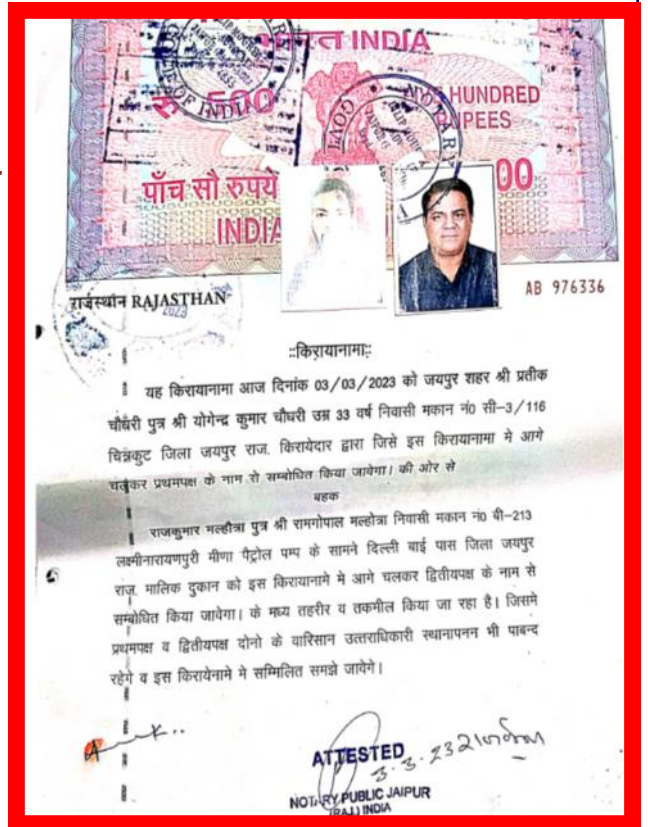 भारत INDIA
रु. 500
FIVE HUNDRED
RUPEES
पाँच सौ रुपये
00
INDIA
राजस्थान RAJASTHAN
2023
AB 976336
::किरायानामा::
यह किरायानामा आज दिनांक 03/03/2023 को जयपुर शहर श्री प्रतीक
चौधरी पुत्र श्री योगेन्द्र कुमार चौधरी उम्र 33 वर्ष निवासी मकान नं0 सी-3/116
चित्रकुट जिला जयपुर राज. किरायेदार द्वारा जिसे इस किरायानामा मे आगे
चलकर प्रथमपक्ष के नाम से सम्बोधित किया जावेगा। की ओर से
बहक
राजकुमार मल्होत्रा पुत्र श्री रामगोपाल मल्होत्रा निवासी मकान नं0 बी-213
लक्ष्मीनारायणपुरी मीणा पैट्रोल पम्प के सामने दिल्ली बाई पास जिला जयपुर
राज. मालिक दुकान को इस किरायानामे मे आगे चलकर द्वितीयपक्ष के नाम से
सम्बोधित किया जावेगा। के मध्य तहरीर व तकमील किया जा रहा है। जिसमे
प्रथमपक्ष व द्वितीयपक्ष दोनो के वारिसान उत्तराधिकारी स्थानापनन भी पाबन्द
रहेगे व इस किरायेनामे मे सम्मिलित समझे जायेगे।
ATTESTED
3.3.23
NOTARY PUBLIC JAIPUR
(RAJ.) INDIA